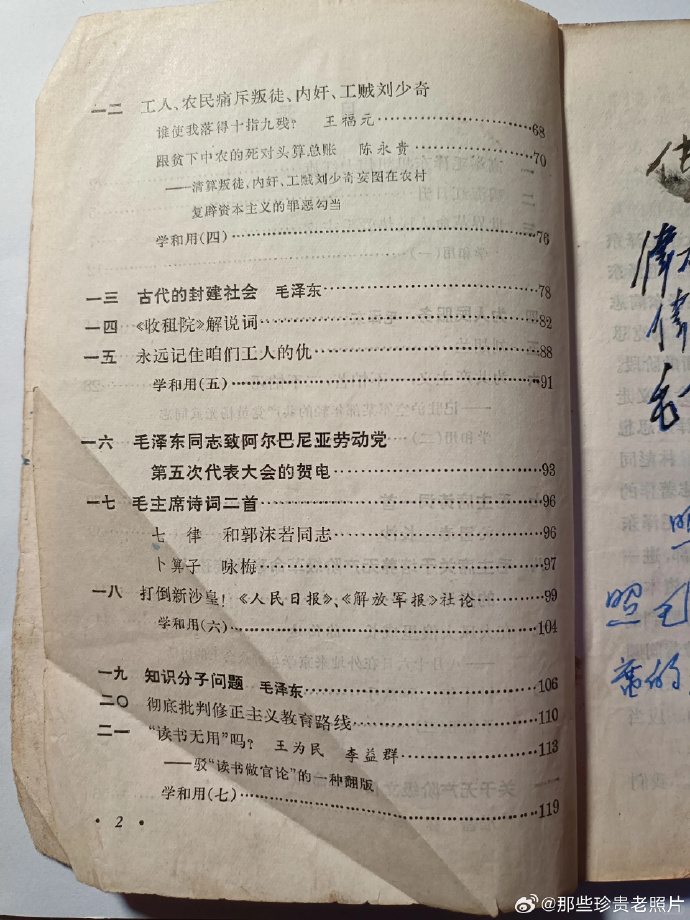 一二 工人、农民痛斥叛徒、内奸、工贼刘少奇
谁使我落得十指九残? 王福元……68
跟贫下中农的死对头算总账 陈永贵……70
——清算叛徒、内奸、工贼刘少奇妄图在农村
复辟资本主义的罪恶勾当
学和用(四)……76
一三 古代的封建社会 毛泽东……78
一四 《收租院》解说词……82
一五 永远记住咱们工人的仇……88
学和用(五)……91
一六 毛泽东同志致阿尔巴尼亚劳动党
第五次代表大会的贺电……93
一七 毛主席诗词二首……96
七 律 和郭沫若同志……96
卜算子 咏梅……97
一八 打倒新沙皇!《人民日报》、《解放军报》社论……99
学和用(六)……104
一九 知识分子问题 毛泽东……106
二〇 彻底批判修正主义教育路线……110
二一 “读书无用”吗? 王为民 李益群……113
——驳“读书做官论”的一种翻版
学和用(七)……119
· 2 ·
照毛
席的
@那些珍贵老照片